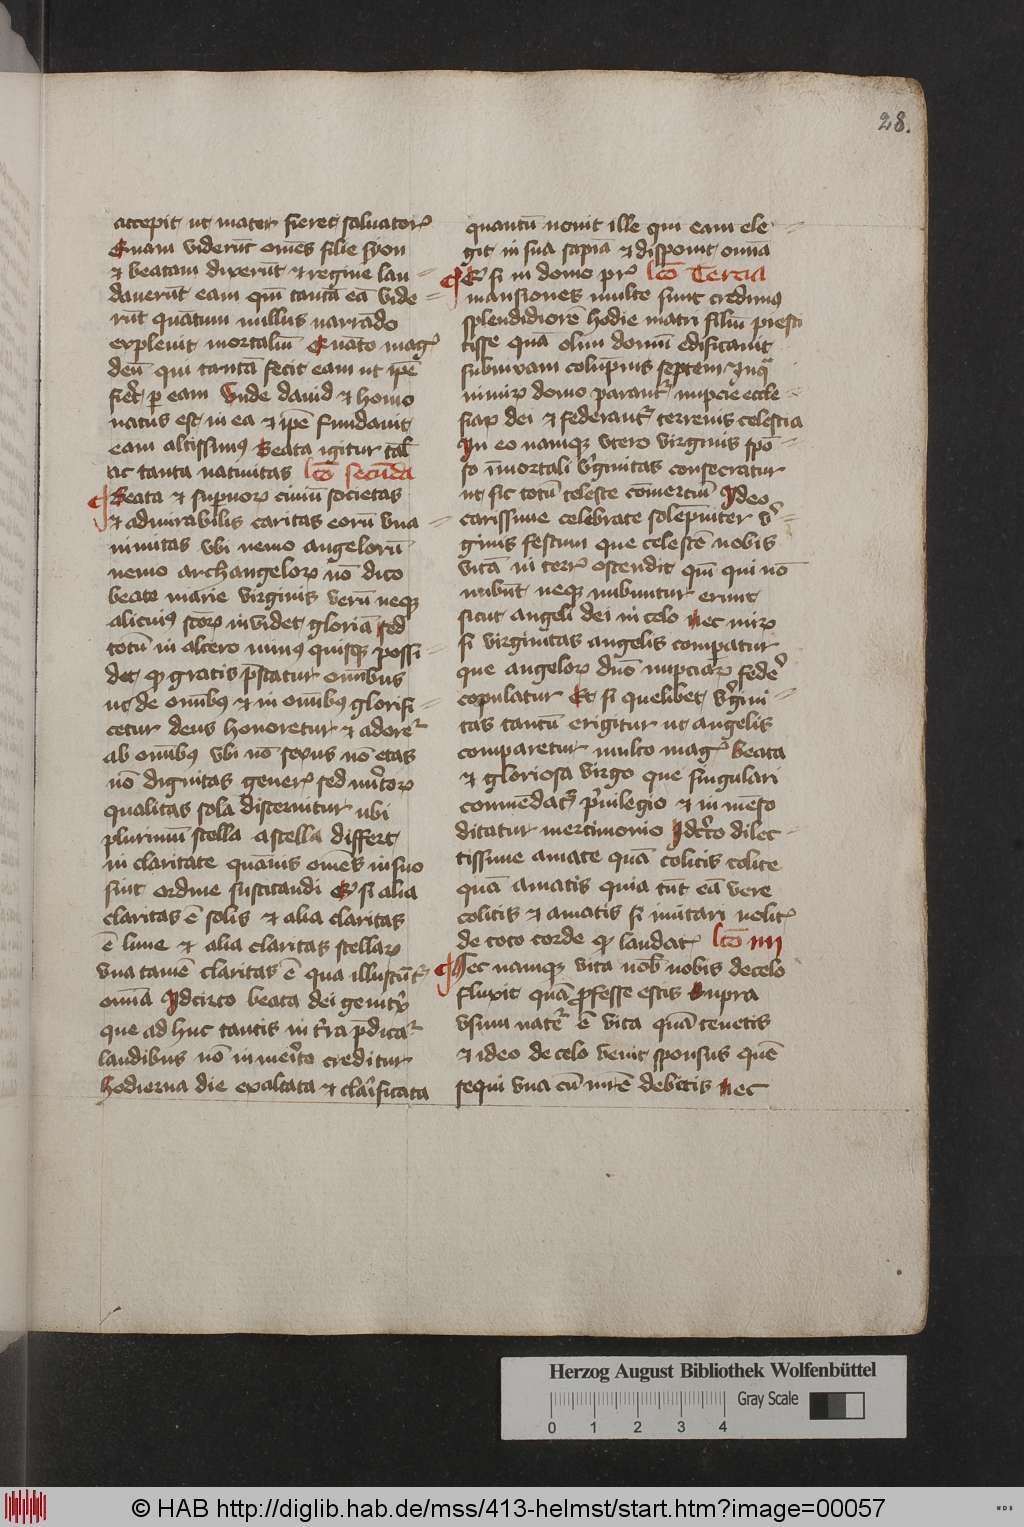 28.
accepit ut mater fieret saluatorꝭ
Quam viderūt om̄es filie syon
⁊ beatam dixerūt ⁊ regine lau
dauerūt eam qm̄ tantā eā vide
rūt quātum nullus narrādo
expleuit mortaliū Quāto magꝭ
deū qui tantā fecit eam ut ip̄e
fieret ꝑ eam Vnde dauid ⁊ homo
natus est in ea ⁊ ip̄e fundauit
eam altissimꝰ Beata igitur tal̄
ac tanta natiuitas lc̄o secūda
Beata ⁊ supnoꝝ ciuiū societas
⁊ admirabilis caritas eorū vna
nimitas vbi nemo angelorū
nemo archangeloꝝ nō dico
beate marie virginis verū neqꝫ
alicuiꝰ sc̄oꝝ inuidet gloriā sed
totū in altero munꝰ quisqꝫ possi
det qꝫ gratis p̄statur om̄ibus
ut de om̄ibꝰ ⁊ in om̄ibꝰ glorifi
cetur deus honoretur ⁊ adoretꝛ
ab om̄ibꝰ vbi nō sexus nō etas
nō dignitas generꝭ sed mītoꝝ
qualitas sola discernitur ubi
plurimū stella a stella differt
in claritate quāuis om̄es in suo
sint ordine suscitandi Et si alia
claritas ē solis ⁊ alia claritas
ē lune ⁊ alia claritas stellaꝝ
vna tamē claritas ē qua illustāt̄
om̄ia Idcirco beata dei genitꝭx
que ad huc tantis in tꝭra p̄dicatꝛ
laudibus nō in meꝭto creditur
hodierna die exaltata ⁊ claꝭficata
quantū nouit ille qui eam ele
git in sua sapīa ⁊ disponit om̄ia
Et si in domo prꝭ lc̄o Tercia
mansiones multe sunt credimꝰ
splendidiorē hodie matri filiū presti
tisse quā olim domū edificauit
subnixam colūpnis septem Inqꝫ
nimiꝝ domo parantꝛ nupcie eccle
siaꝝ dei ⁊ federantꝛ terrenis celestia
In eo namqꝫ vtero virginis spō
so īmortali vꝭginitas consecratur
ut sic totū celeste cōmerciū Ideo
carissime celebrate solēpniter vꝭ
ginis festum que celestē nobis
vitā in terrꝭ ostendit qm̄ qui nō
nubūt neqꝫ nubuntur erunt
sicut angeli dei in celo Nec miꝝ
si virginitas angelis compatur
que angeloꝝ duō nupciaꝝ federe
copulatur Et si quelibet vꝭgini
tas tantū erigitur ut angelis
comparetur multo magꝭ beata
⁊ gloriosa virgo que singulari
commēdatꝛ pꝭuilegio ⁊ in mēso
ditatur mercimonio Idcꝭto dilec
tissime amate quā colitis colite
quā amatis quia tūc eā vere
colitis ⁊ amatis si imitari uelitꝭ
de toto corde qꝫ laudatꝭ lc̄o IIII
Hec namqꝫ vita nob̄ nobis de celo
fluxit quā ꝓfesse estis Supra
vsum natꝭe ē vita quā tenetis
⁊ ideo de celo venit sponsus quē
sequi vna cū mr̄e debetis Nec
Herzog August Bibliothek Wolfenbüttel
Gray Scale
0 1 2 3 4
© HAB http://diglib.hab.de/mss/413-helmst/start.htm?image=00057
WDB